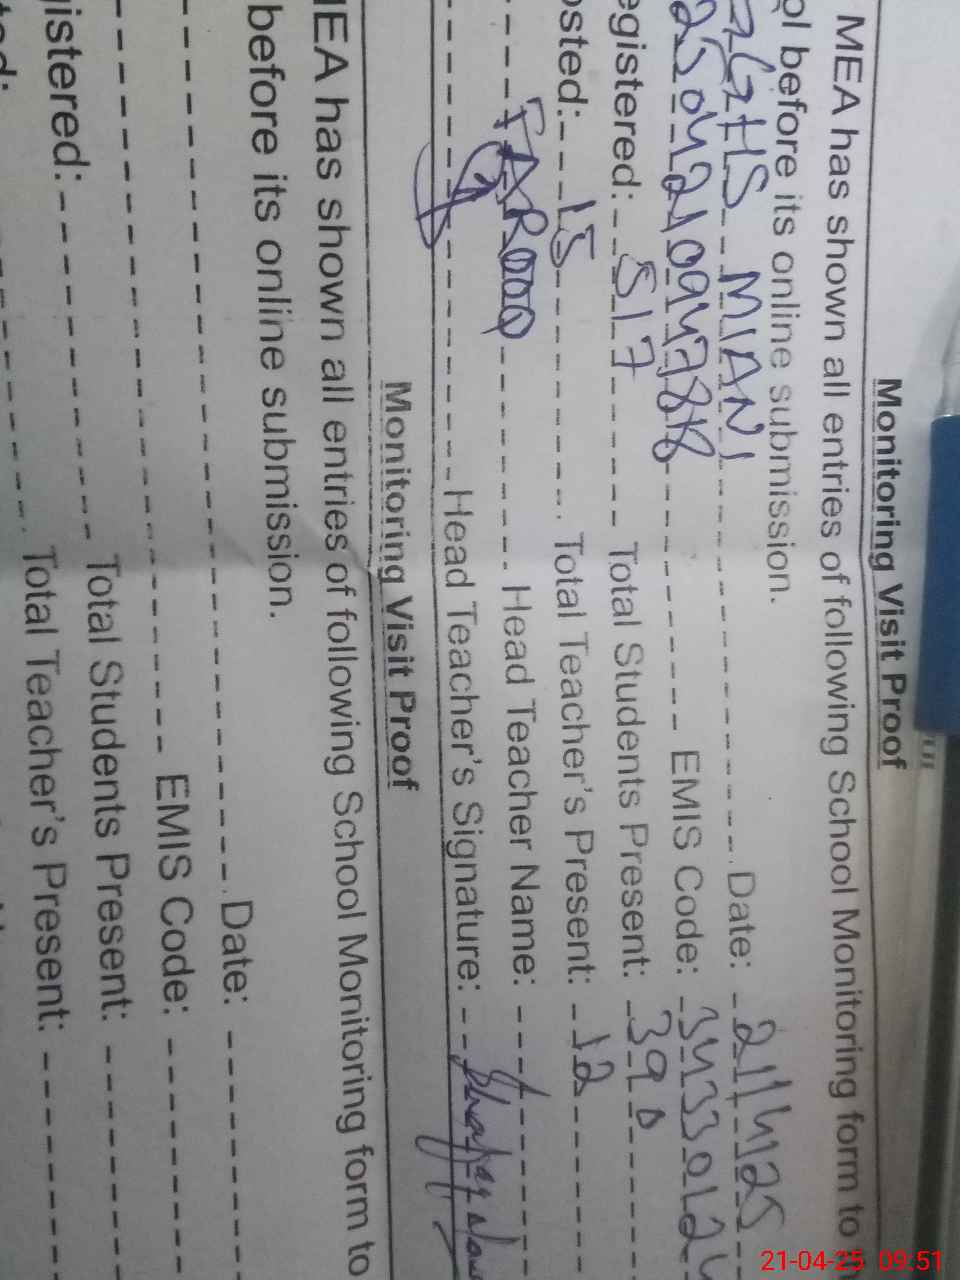 Monitoring Visit Proof
MEA has shown all entries of following School Monitoring form to
ol before its online submission.
GGHS MIANI Date: 21/4/25
25042109478K EMIS Code: 34330124
egistered: 517 Total Students Present: 390
osted: 15 Total Teacher's Present: 12
FAROOQ Head Teacher Name:
Head Teacher's Signature:
Monitoring Visit Proof
IEA has shown all entries of following School Monitoring form to
before its online submission.
Date:
EMIS Code:
gistered: Total Students Present:
ted: Total Teacher's Present:
21-04-25 09:51